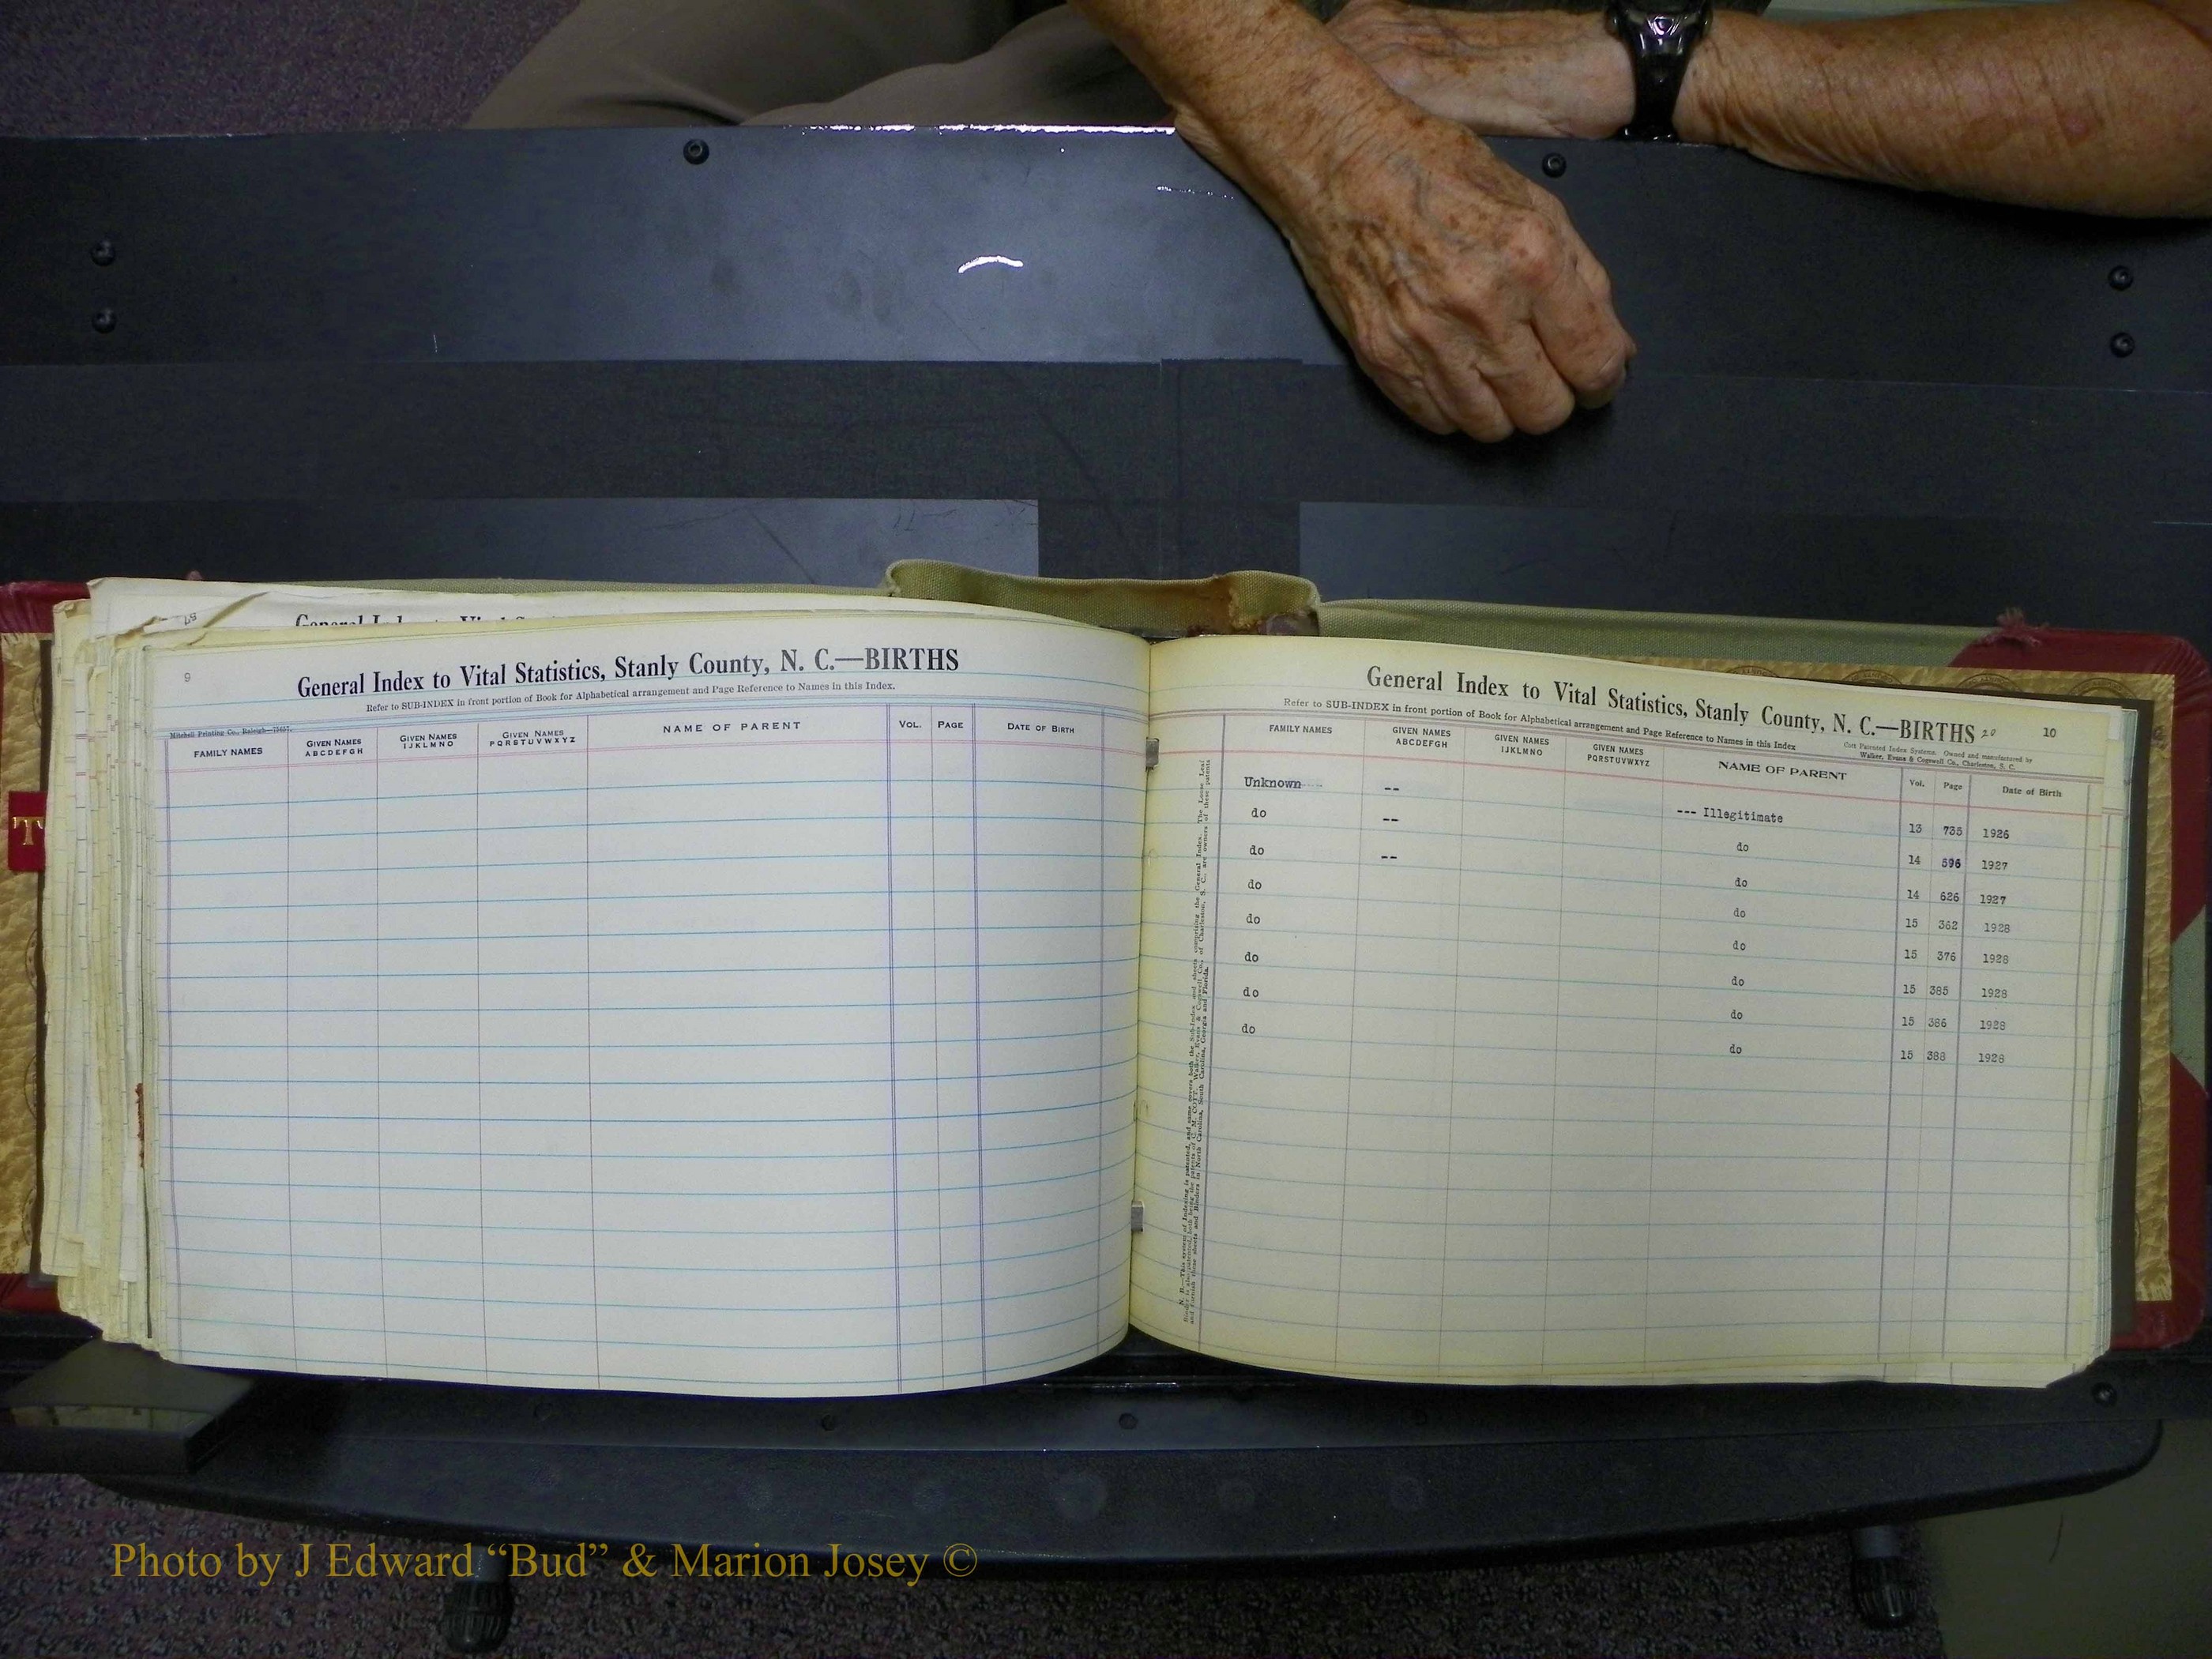 57
General Index to Vital S
9
General Index to Vital Statistics, Stanly County, N. C.—BIRTHS
Refer to SUB-INDEX in front portion of Book for Alphabetical arrangement and Page Reference to Names in this Index.
Mitchell Printing Co., Raleigh
FAMILY NAMES GIVEN NAMES ABCDEFGH GIVEN NAMES IJKLMNO GIVEN NAMES PQRSTUVWXYZ NAME OF PARENT VOL. PAGE DATE OF BIRTH
T
General Index to Vital Statistics, Stanly County, N. C.—BIRTHS 20 10
Refer to SUB-INDEX in front portion of Book for Alphabetical arrangement and Page Reference to Names in this Index
Cott Patented Index Systems. Owned and manufactured by
Walker, Evans & Cogswell Co., Charleston, S. C.
FAMILY NAMES GIVEN NAMES ABCDEFGH GIVEN NAMES IJKLMNO GIVEN NAMES PQRSTUVWXYZ NAME OF PARENT Vol. Page Date of Birth
Unknown -- --- Illegitimate 13 735 1926
do -- do 14 596 1927
do -- do 14 626 1927
do do 15 362 1928
do do 15 376 1928
do do 15 385 1928
do do 15 386 1928
do do 15 388 1928
N. B.—This system of Indexing is patented, and same covers both the Sub-Index and sheets comprising the General Index. The Loose Leaf
Binder is also patented, both being the patents of C. M. COTT. Walker, Evans & Cogswell Co., of Charleston, S. C., are owners of these patents
and furnish these sheets and Binders in North Carolina, South Carolina, Georgia and Florida.
Photo by J Edward “Bud” & Marion Josey ©